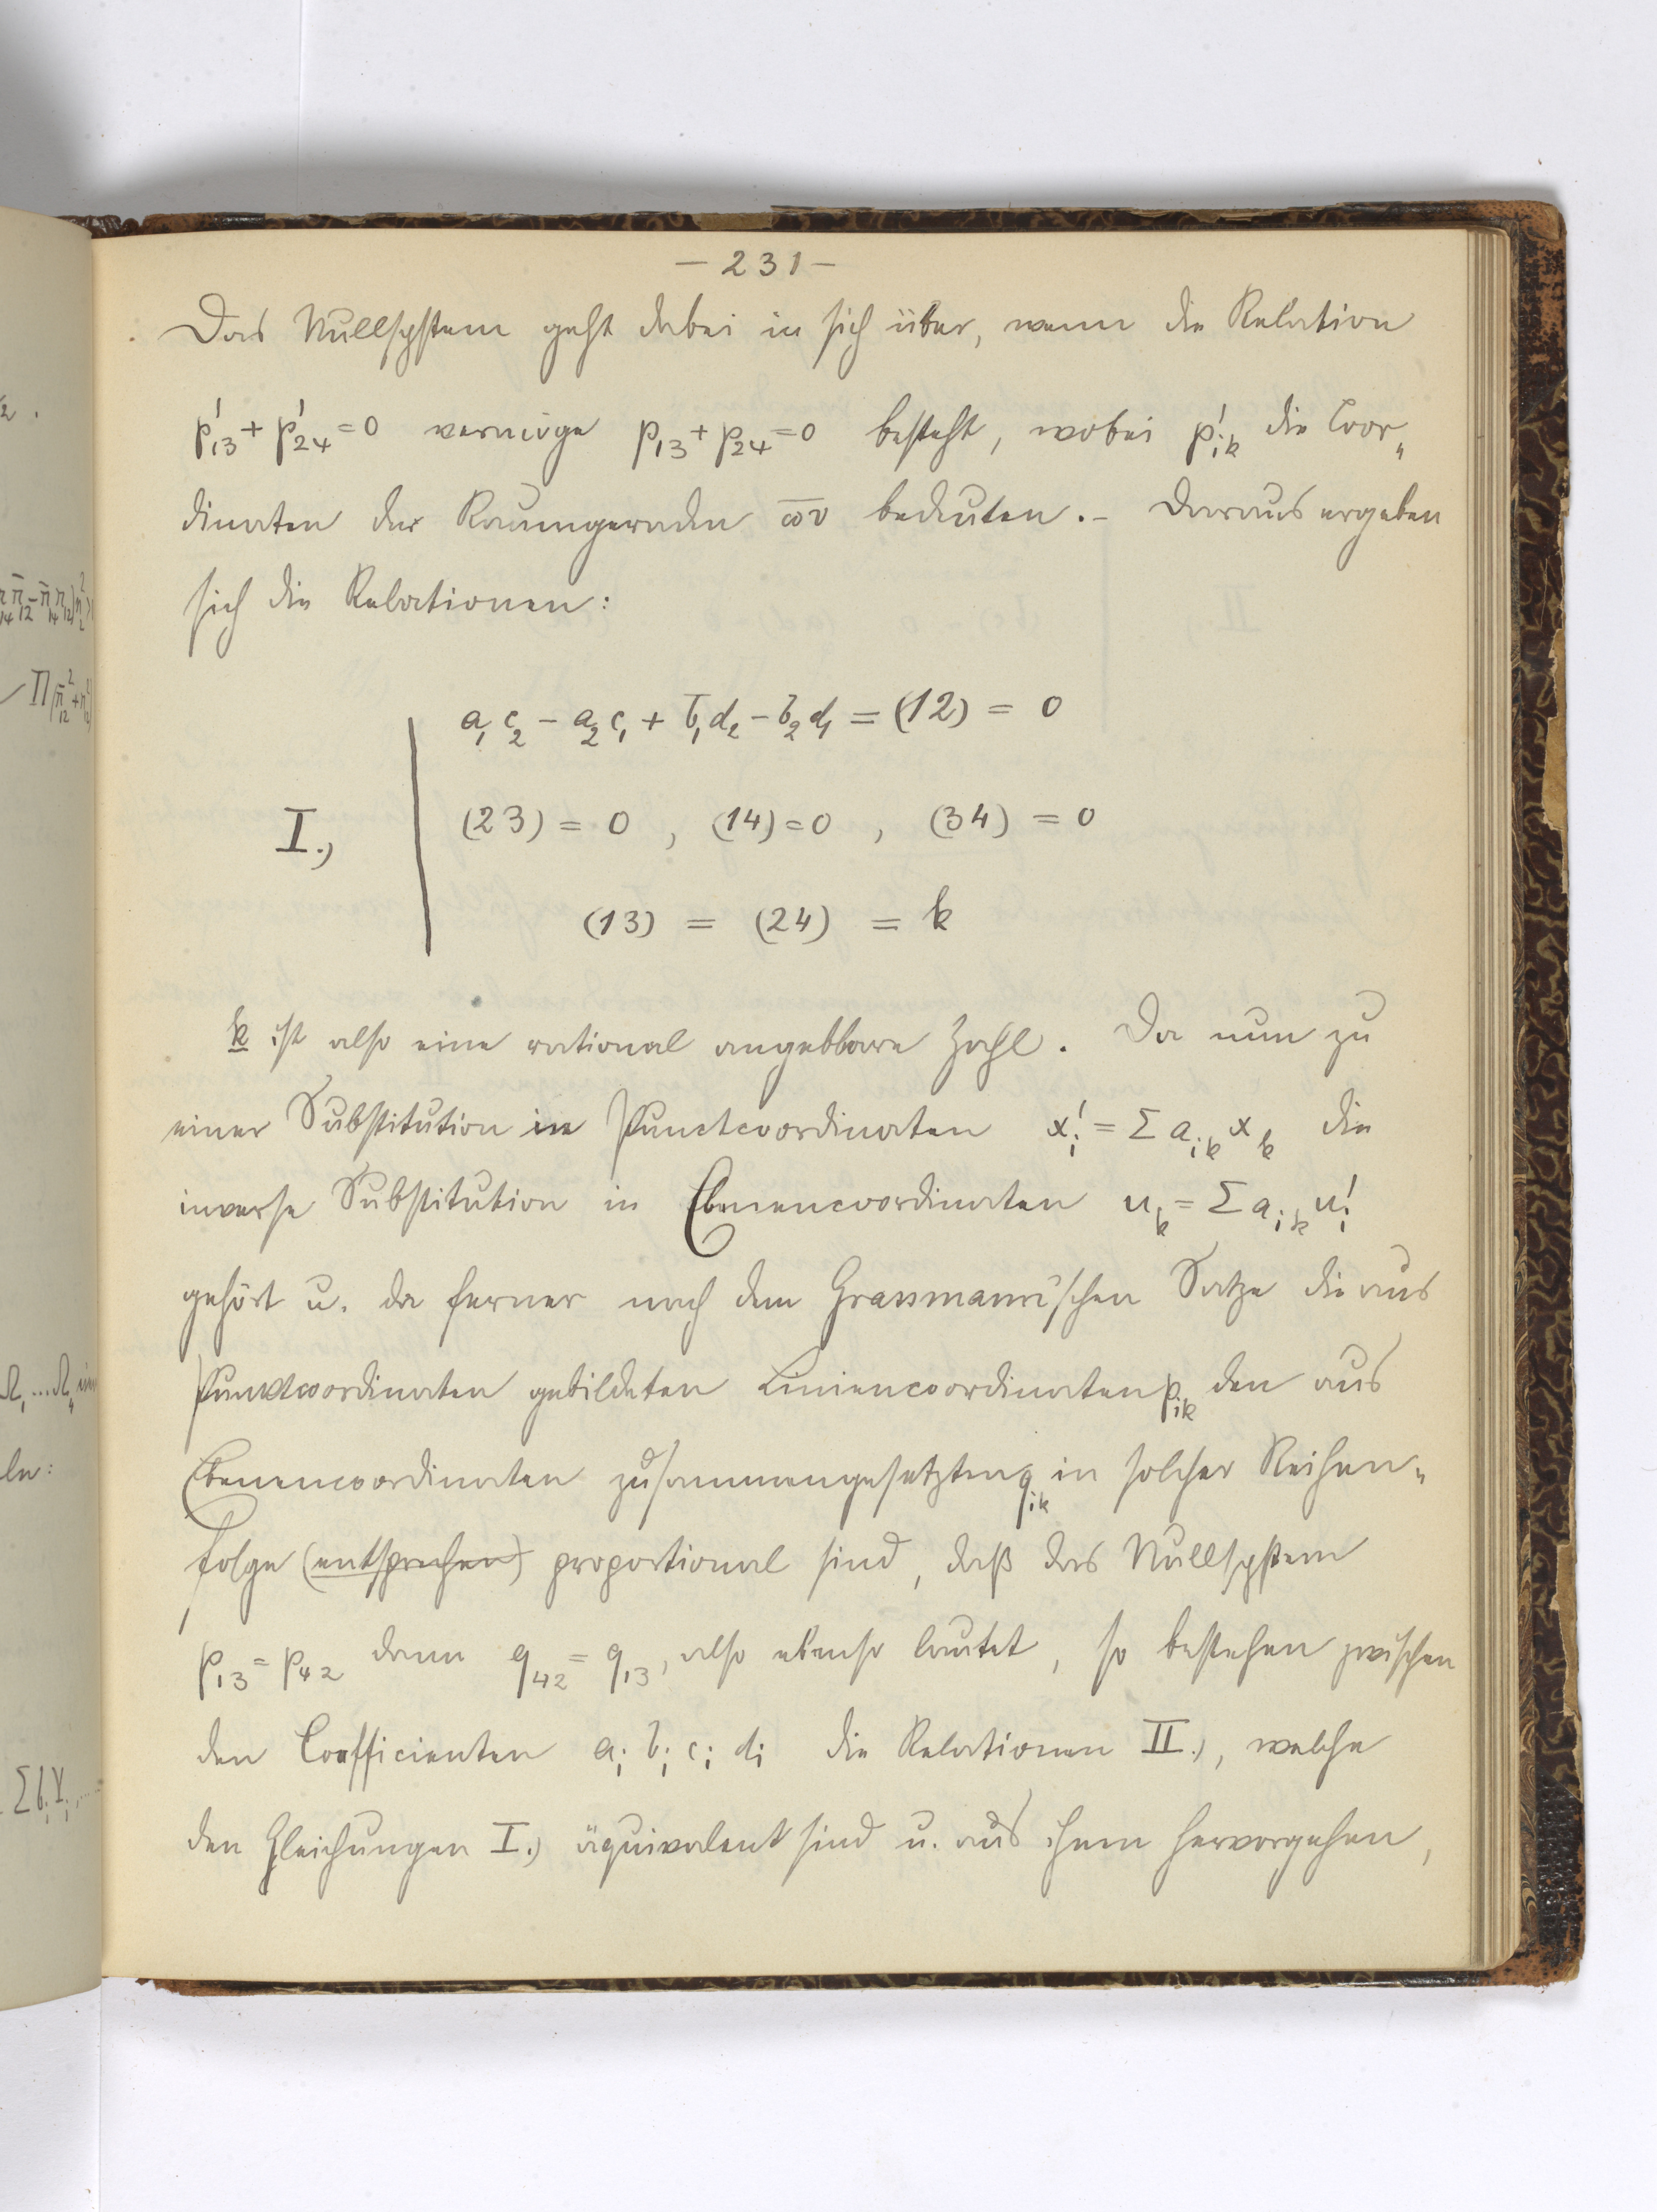 — 231 —
Das Nullsystem geht dabei in sich über, wenn die Relation
p'₁₃ + p'₂₄ = 0 vermöge p₁₃ + p₂₄ = 0 besteht, wobei p'ᵢₖ die Coor„
dinaten der Raumgeraden ω̅v̅ bedeuten. – Daraus ergeben
sich die Relationen:
a₁c₂ – a₂c₁ + b₁d₂ – b₂d₁ = (12) = 0
I.) (23) = 0 , (14) = 0 , (34) = 0
(13) = (24) = k
k ist also eine rational angebbare Zahl. Da nun zu
einer Substitution in Punctcoordinaten x'ᵢ = Σ aᵢₖ xₖ die
inverse Substitution in Ebenencoordinaten uₖ = Σ aᵢₖ u'ᵢ
gehört u. da ferner nach dem Grassmann'schen Satze die aus
Punktcoordinaten gebildeten Liniencoordinaten pᵢₖ den aus
Ebenencoordinaten zusammengesetzten qᵢₖ in solcher Reihen„
folge (entsprechen) proportional sind, daß das Nullsystem
p₁₃ = p₄₂ dann q₄₂ = q₁₃, also ebenso lautet, so bestehen zwischen
den Coefficienten aᵢ bᵢ cᵢ dᵢ die Relationen II.), welche
den Gleichungen I.) äquivalent sind u. aus ihnen hervorgehen,